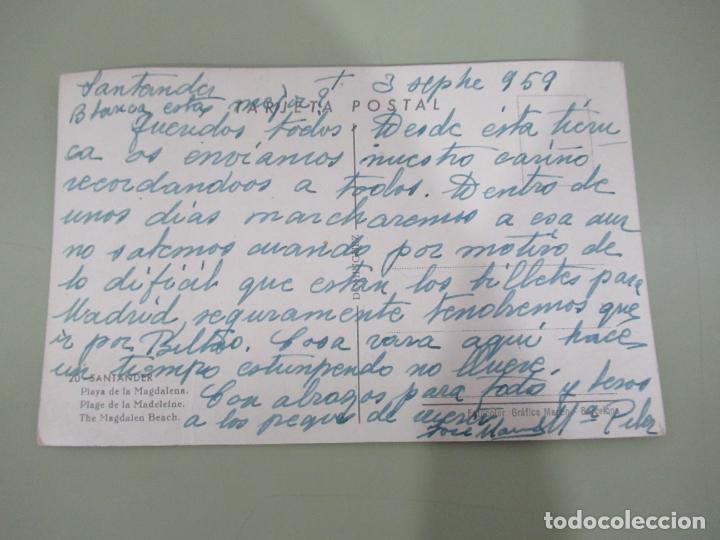 Santander † 3 sepbre 959
Blanca estás mejor?
TARJETA POSTAL
Queridos todos. Desde ésta tierru
ca os enviamos nuestro cariño
recordandoos a todos. Dentro de
unos dias marcharemos a esa aun
no sabemos cuando por motivo de
lo dificil que están los billetes para
Madrid, seguramente tendremos que
ir por Bilbao. Cosa rara aquí hace
un tiempo estupendo no llueve.
20 - SANTANDER
Playa de la Magdalena.
Plage de la Madeleine.
The Magdalen Beach.
Con abrazos para todos y besos
a los peques de
José Manuel Mª Pilar
Gráfico Barcelona
todocoleccion
todocoleccion.net